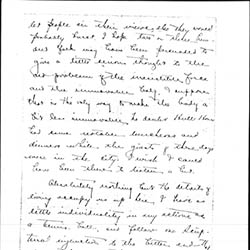 let people in their [...] they would
probably burst. I hope two or three
and folk may have been persuaded to
give a little serious thought to the
old problem of the irresistible force
and the immovable body. I suppose
that is the only way to make the body a
bit less immovable. No doubt Hull House
had some notable luncheons and
dinners while the giants of those days
were in the city. I wish I could
have been there to listen a bit.
Absolutely nothing but the details of
living occupy me up here. I have as
little individuality in my actions as
a tennis ball, and follow the Scrip-
tural injunction to the letter, and the